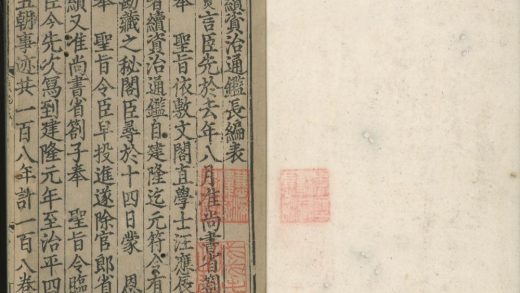 續資治通鑑長編表
言臣先於去年八月准尚書省劄
奉 聖旨依敷文閣直學士汪應辰
續資治通鑑自建隆迄元符令有
藏之秘閣臣尋於十四日蒙 恩
奉 聖旨令臣早投進遂除官郎省
續又准尚書省劄子奉 聖旨令臨
臣今先次寫到建隆元年至治平四
五朝事迹共一百八年計一百八卷